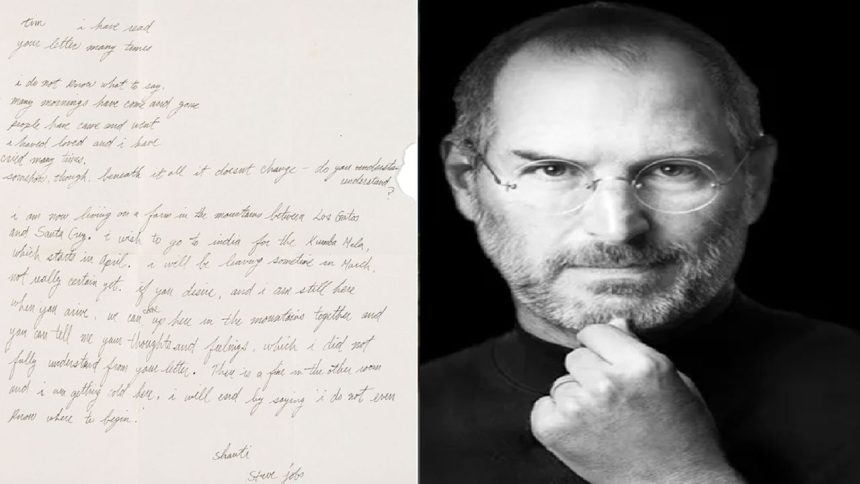 tim i have read
your letter many times
i do not know what to say.
many mornings have come and gone
people have came and went
i haved loved and i have
cried many times.
somehow, though, beneath it all it doesnt change - do you
understand?
i am now living on a farm in the mountains between Los Gatos
and Santa Cruz. i wish to go to india for the Kumba Mela,
which starts in April. i will be leaving sometime in March,
not really certain yet. if you desire, and i am still here
when you arive, we can up here in the mountains together and
you can tell me your thoughts and feelings, which i did not
fully understand from your letter. There is a fire in the other room
and i am getting cold here. i will end by saying i do not even
know where to begin!
shanti
steve jobs